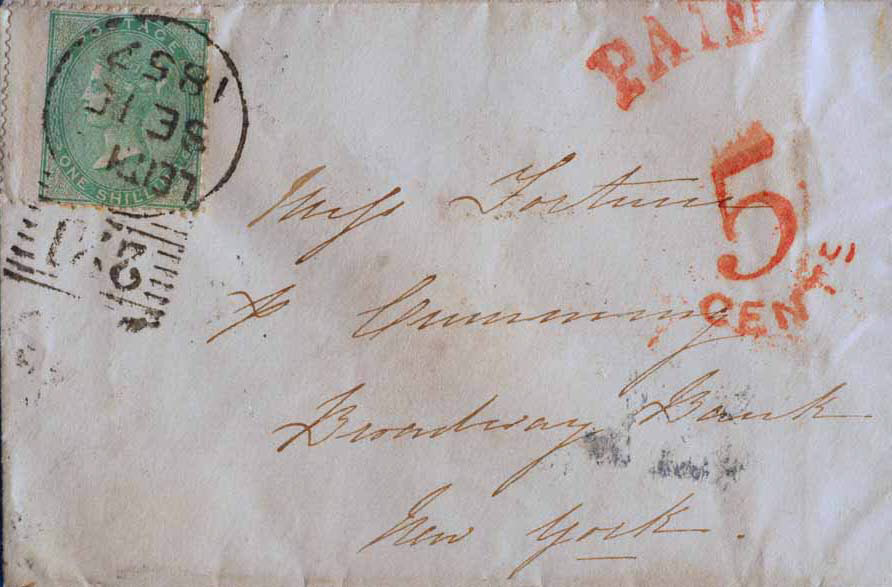 POSTAGE
ONE SHILLING
LEITH
SE 15
1857
PAID
5
CENTS
Miss Fortune
Cumming
Broadway Bank
New York.